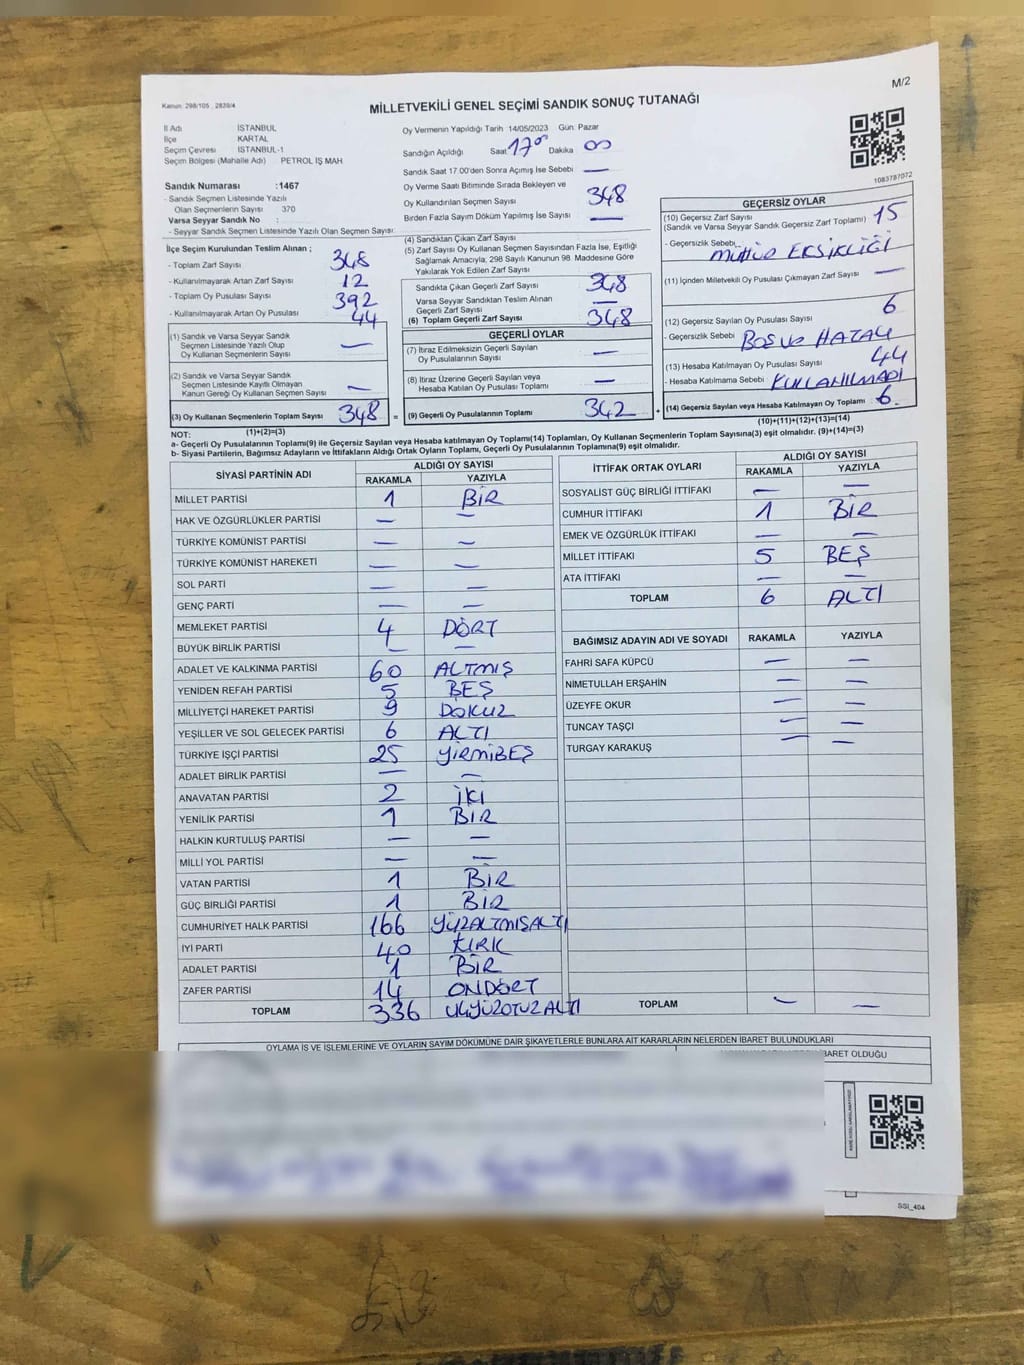 M/2
Kanun: 298/105 , 2839/4
MİLLETVEKİLİ GENEL SEÇİMİ SANDIK SONUÇ TUTANAĞI
İl Adı İSTANBUL
İlçe KARTAL
Seçim Çevresi İSTANBUL-1
Seçim Bölgesi (Mahalle Adı) PETROL İŞ MAH
Sandık Numarası :1467
- Sandık Seçmen Listesinde Yazılı
Olan Seçmenlerin Sayısı 370
Varsa Seyyar Sandık No :
- Seyyar Sandık Seçmen Listesinde Yazılı Olan Seçmen Sayısı:
Oy Vermenin Yapıldığı Tarih :14/05/2023 Gün: Pazar
Sandığın Açıldığı Saat 17 00 Dakika 00
Sandık Saat 17.00'den Sonra Açmış İse Sebebi —
Oy Verme Saati Bitiminde Sırada Bekleyen ve
Oy Kullandırılan Seçmen Sayısı 348
Birden Fazla Sayım Döküm Yapılmış İse Sayısı —
1083787072
İlçe Seçim Kurulundan Teslim Alınan ;
- Toplam Zarf Sayısı 348
- Kullanılmayarak Artan Zarf Sayısı 12
- Toplam Oy Pusulası Sayısı 392
- Kullanılmayarak Artan Oy Pusulası 44
(1) Sandık ve Varsa Seyyar Sandık
Seçmen Listesinde Yazılı Olup
Oy Kullanan Seçmenlerin Sayısı —
(2) Sandık ve Varsa Seyyar Sandık
Seçmen Listesinde Kayıtlı Olmayan
Kanun Gereği Oy Kullanan Seçmen Sayısı —
(3) Oy Kullanan Seçmenlerin Toplam Sayısı 348 =
(1)+(2)=(3)
(4) Sandıktan Çıkan Zarf Sayısı
(5) Zarf Sayısı Oy Kullanan Seçmen Sayısından Fazla İse, Eşitliği
Sağlamak Amacıyla, 298 Sayılı Kanunun 98. Maddesine Göre
Yakılarak Yok Edilen Zarf Sayısı
Sandıkta Çıkan Geçerli Zarf Sayısı 348
Varsa Seyyar Sandıktan Teslim Alınan
Geçerli Zarf Sayısı —
(6) Toplam Geçerli Zarf Sayısı 348
GEÇERLİ OYLAR
(7) İtiraz Edilmeksizin Geçerli Sayılan
Oy Pusulalarının Sayısı —
(8) İtiraz Üzerine Geçerli Sayılan veya
Hesaba Katılan Oy Pusulası Toplamı —
(9) Geçerli Oy Pusulalarının Toplamı 342 +
GEÇERSİZ OYLAR
(10) Geçersiz Zarf Sayısı
(Sandık ve Varsa Seyyar Sandık Geçersiz Zarf Toplamı) 15
- Geçersizlik Sebebi MÜHÜR EKSİKLİĞİ
(11) İçinden Milletvekili Oy Pusulası Çıkmayan Zarf Sayısı —
(12) Geçersiz Sayılan Oy Pusulası Sayısı 6
- Geçersizlik Sebebi BOŞ VE HATALI
(13) Hesaba Katılmayan Oy Pusulası Sayısı 44
- Hesaba Katılmama Sebebi KULLANILMADI
(14) Geçersiz Sayılan veya Hesaba Katılmayan Oy Toplamı 6.
(10)+(11)+(12)+(13)=(14)
NOT:
a- Geçerli Oy Pusulalarının Toplamı(9) ile Geçersiz Sayılan veya Hesaba katılmayan Oy Toplamı(14) Toplamları, Oy Kullanan Seçmenlerin Toplam Sayısına(3) eşit olmalıdır. (9)+(14)=(3)
b- Siyasi Partilerin, Bağımsız Adayların ve İttifakların Aldığı Ortak Oyların Toplamı, Geçerli Oy Pusulalarının Toplamına(9) eşit olmalıdır.
SİYASİ PARTİNİN ADI ALDIĞI OY SAYISI
RAKAMLA YAZIYLA
MİLLET PARTİSİ 1 BİR
HAK VE ÖZGÜRLÜKLER PARTİSİ — —
TÜRKİYE KOMÜNİST PARTİSİ — —
TÜRKİYE KOMÜNİST HAREKETİ — —
SOL PARTİ — —
GENÇ PARTİ — —
MEMLEKET PARTİSİ 4 DÖRT
BÜYÜK BİRLİK PARTİSİ — —
ADALET VE KALKINMA PARTİSİ 60 ALTMIŞ
YENİDEN REFAH PARTİSİ 5 BEŞ
MİLLİYETÇİ HAREKET PARTİSİ 9 DOKUZ
YEŞİLLER VE SOL GELECEK PARTİSİ 6 ALTI
TÜRKİYE İŞÇİ PARTİSİ 25 YİRMİBEŞ
ADALET BİRLİK PARTİSİ — —
ANAVATAN PARTİSİ 2 İKİ
YENİLİK PARTİSİ 1 BİR
HALKIN KURTULUŞ PARTİSİ — —
MİLLİ YOL PARTİSİ — —
VATAN PARTİSİ 1 BİR
GÜÇ BİRLİĞİ PARTİSİ 1 BİR
CUMHURİYET HALK PARTİSİ 166 YÜZALTMIŞALTI
İYİ PARTİ 40 KIRK
ADALET PARTİSİ 1 BİR
ZAFER PARTİSİ 14 ONDÖRT
TOPLAM 336 ÜÇYÜZOTUZALTI
İTTİFAK ORTAK OYLARI ALDIĞI OY SAYISI
RAKAMLA YAZIYLA
SOSYALİST GÜÇ BİRLİĞİ İTTİFAKI — —
CUMHUR İTTİFAKI 1 BİR
EMEK VE ÖZGÜRLÜK İTTİFAKI — —
MİLLET İTTİFAKI 5 BEŞ
ATA İTTİFAKI — —
TOPLAM 6 ALTI
BAĞIMSIZ ADAYIN ADI VE SOYADI RAKAMLA YAZIYLA
FAHRİ SAFA KÜPCÜ — —
NİMETULLAH ERŞAHİN — —
ÜZEYFE OKUR — —
TUNCAY TAŞÇI — —
TURGAY KARAKUŞ — —
TOPLAM — —
OYLAMA İŞ VE İŞLEMLERİNE VE OYLARIN SAYIM DÖKÜMÜNE DAİR ŞİKAYETLERLE BUNLARA AİT KARARLARIN NELERDEN İBARET BULUNDUKLARI
İBARET OLDUĞU
SSİ_404